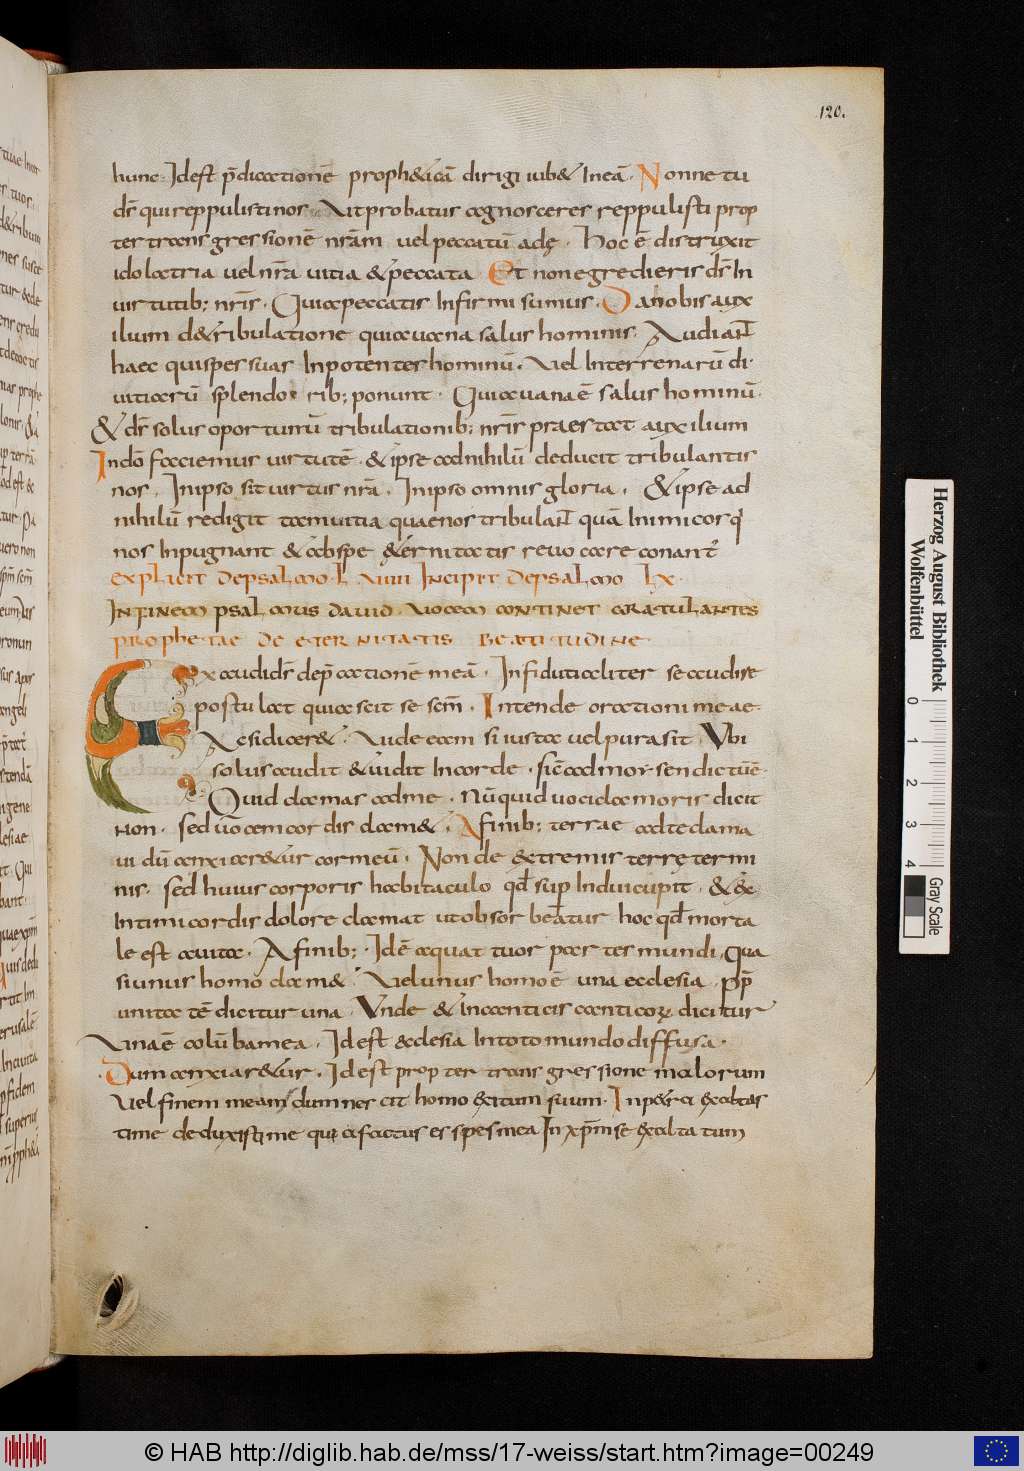 120.
hunc. Id est p̄dicationē proph&icā dirigi iub& In eā. Nonne tu
d̄s qui reppulisti nos. Vt probatus agnosceres reppulisti prop
ter transgressionē nr̄am vel peccatū adę. Hoc ē distruxit
idolatria vel nr̄a vitia & peccata Et non egredieris d̄s In
uirtutib; nr̄is. Quia peccatis Infirmi sumus. Da nobis aux
ilium de tribulatione quia uana salus hominis. Audiant
haec qui spes suas In potenter hominū. Vel In terrenarū di
uitiarū splendorib; ponunt. Quia uana ē salus hominū.
& d̄s solus oportunū tribulationib; nr̄is praestat auxilium
In dō faciemus uirtutē. & ipse ad nihilū deducit tribulantis
nos. In ipso sit uirtus nr̄a. In ipso omnis gloria. & ipse ad
nihilū redigit tamuitia quae nos tribulant quā Inimicos q
nos Inpugnant & ab spe &ernitatis reuocare conant
Explicit de psalmo L VIIII Incipit de psalmo LX.
In finem psalmus david. vocem continet gratulantes
prophetae de eternitatis beatitudine
Exaudi d̄s dep̄cationē meā. In fidutialiter se audire
postulat quia scit se scm̄. Intende orationi meae.
Ac si dicer&. Vide eam si iusta uel pura sit. Vbi
solus audit & uidit In corde. sic ad
Quid clamas ad me. Nūquid uoci clamoris dicit
non. sed uocem cordis clam&. A finib; terrae ad te clama
ui dū anxiar&ur cor meū. Non de extremis terrę termi
nis. sed huius corporis habitaculo qd̄ sup Indui cupit. & ex
Intimi cordis dolore clamat ut obsorbeatur hoc qd̄ morta
le est a uita. A finib;. Idē a quattuor partes mundi, qua
si unus homo clam&. Vel unus homo ē una ecclesia. pp̄
unitatē dicitur una. Vnde & in canticis canticorum dicitur
Vna ē columba mea. Id est ecclesia In toto mundo diffusa.
Dum anxiar&ur. Id est propter transgressione malorum
Vel finem meam dum nescit homo exitum suum. In p&ra exaltas
ti me deduxisti me quia factus es spes mea In xp̄m se exaltatum
Herzog August Bibliothek
Wolfenbüttel
0 1 2 3 4
Gray Scale
© HAB http://diglib.hab.de/mss/17-weiss/start.htm?image=00249